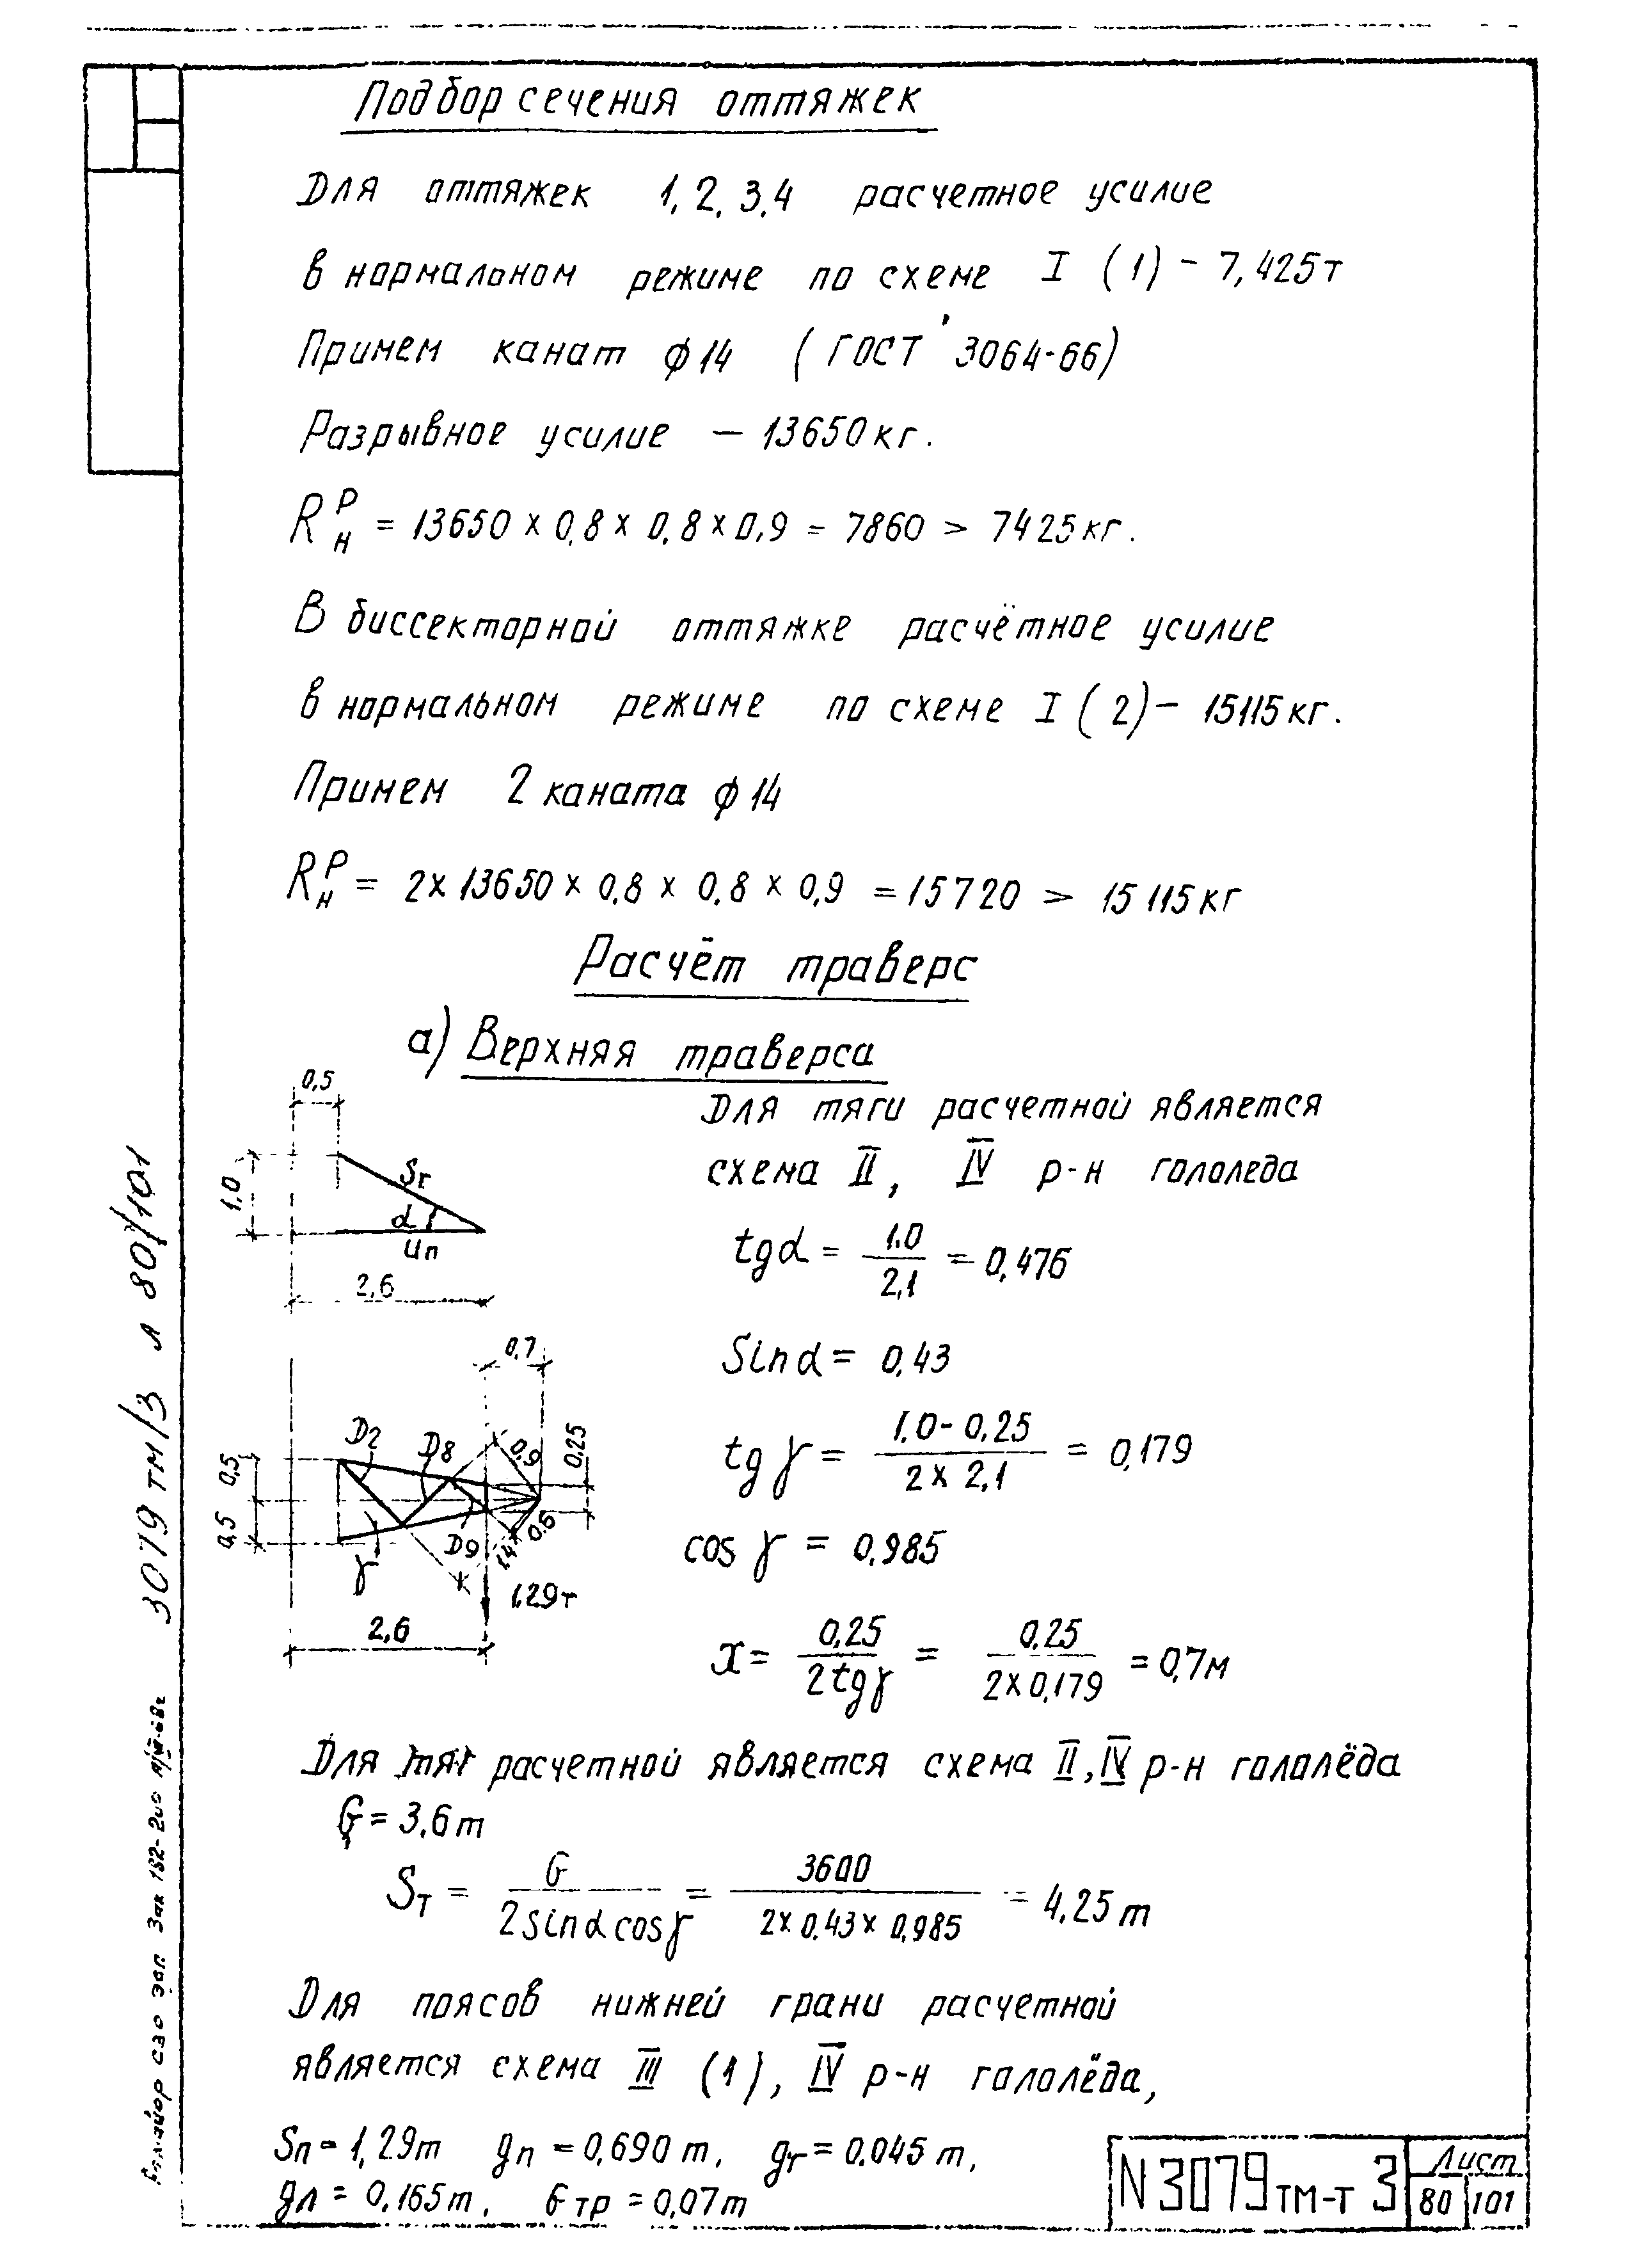 Подбор сечения оттяжек
Для оттяжек 1, 2, 3, 4 расчетное усилие
в нормальном режиме по схеме I (1) - 7,425т
Примем канат ф 14 (ГОСТ 3064-66)
Разрывное усилие — 13650кг.
R н р = 13650 x 0,8 x 0,8 x 0,9 = 7860 > 7425кг.
В биссекторной оттяжке расчётное усилие
в нормальном режиме по схеме I (2) - 15115кг.
Примем 2 каната ф 14
R н р = 2 x 13650 x 0,8 x 0,8 x 0,9 = 15720 > 15115кг
Расчёт траверс
а) Верхняя траверса
0,5
1.0
Sт
α
Uп
2,6
Для тяги расчетной является
схема II, IV р-н гололеда
tgα = 1.0 / 2,1 = 0,476
Sinα = 0,43
tgγ = 1.0-0,25 / 2 x 2,1 = 0,179
cosγ = 0,985
x = 0,25 / 2tgγ = 0,25 / 2x0,179 = 0,7м
0,7
D2
D8
0,9
0,25
0,5
0,5
D9
1,4
0,6
γ
1,29т
2,6
Для тяг расчетной является схема II, IV р-н гололёда
G = 3,6т
Sт = G / 2sinα cosγ = 3600 / 2x0.43x0,985 = 4,25т
Для поясов нижней грани расчетной
является схема III (1), IV р-н гололёда,
Sп = 1,29т gп = 0,690т, gг = 0.045т,
gл = 0,165т, Gтр = 0,07т
N3079тм-т 3
Лист
80 101
3079тм/3 л 80/101
Зак 182-200